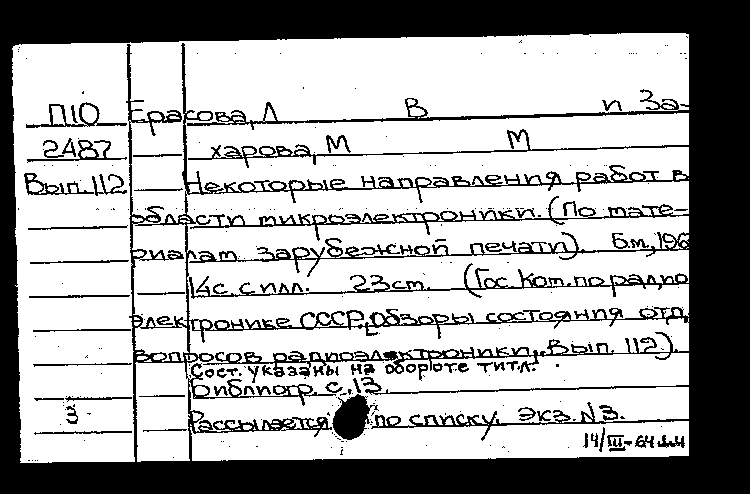 П10 Ерасова, Л В и За-
2487 харова, М М
Вып. 112 Некоторые направления работ в
области микроэлектроники. (По мате-
риалам зарубежной печати). Б.м., 196
14с. с илл. 23см. (Гос. Ком. по радио
электронике СССР. Обзоры состояния отд.
вопросов радиоэлектроники, Вып. 112).
Сост. указаны на обороте титл.
Библиогр. с. 13.
3 Рассылается по списку. Экз. N3.
14/III-64